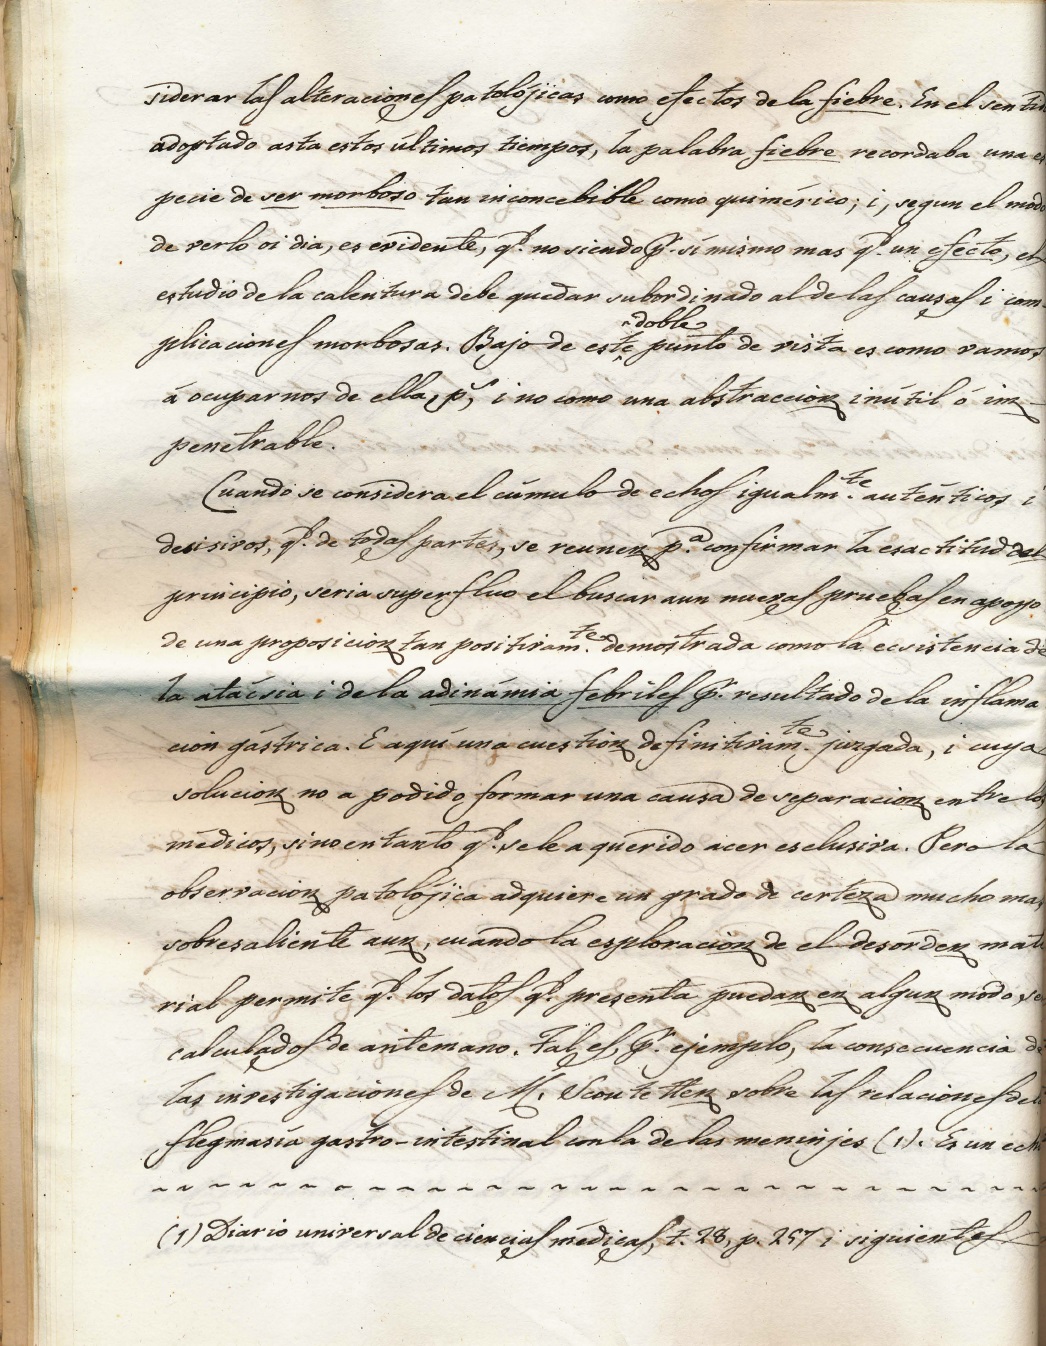 siderar las alteraciones patolójicas como efectos de la fiebre. En el sentido
adoptado asta estos últimos tiempos, la palabra fiebre recordaba una es
pecie de ser morboso tan inconcebible como quimérico; i, segun el modo
de verlo oi dia, es evidente, q.e no siendo p.r sí mismo mas q.e un efecto, el
estudio de la calentura debe quedar subordinado al de las causas i com-
plicaciones morbosas. Bajo de este doble punto de vista es como vamos
á ocuparnos de ella, p.s, i no como una abstraccion inútil ó im
penetrable.
Cuando se considera el cúmulo de echos igualm.te auténticos i
desisivos, q.e de todas partes, se reunen p.a confirmar la esactitud del
principio, seria superfluo el buscar aun nuevas pruebas en apoyo
de una proposicion tan positivam.te demostrada como la ecsistencia de
la atácsia i de la adinámia febriles p.r resultado de la inflama
cion gástrica. E aquí una cuestion definitivam.te juzgada, i cuya
solucion no a podido formar una causa de separacion entre los
médicos, sino en tanto q.e se le a querido acer esclusiva. Pero la
observacion patolójica adquiere un grado de certeza mucho mas
sobresaliente aun, cuando la esploracion de el desórden mate
rial permite q.e los datos q.e presenta puedan en algun modo, se
calculados de antemano. Tal es, p.r ejemplo, la consecuencia de
las investigaciones de M. Scoutetten sobre las relaciones de la
flegmasía gastro-intestinal con la de las meninjes (1). Es un echo
(1) Diario universal de ciencias médicas, t. 28, p. 257 i siguientes